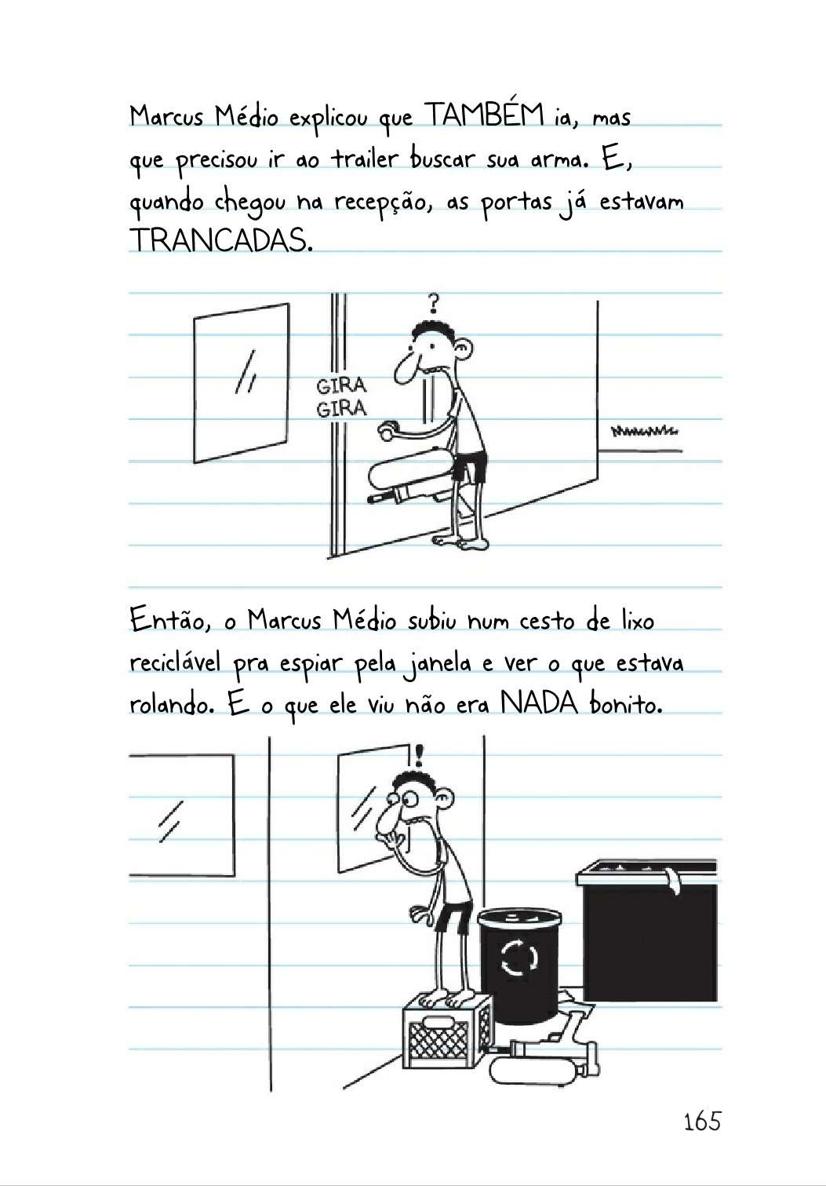 Marcus Médio explicou que TAMBÉM ia, mas
que precisou ir ao trailer buscar sua arma. E,
quando chegou na recepção, as portas já estavam
TRANCADAS.
?
GIRA
GIRA
Então, o Marcus Médio subiu num cesto de lixo
reciclável pra espiar pela janela e ver o que estava
rolando. E o que ele viu não era NADA bonito.
!
165